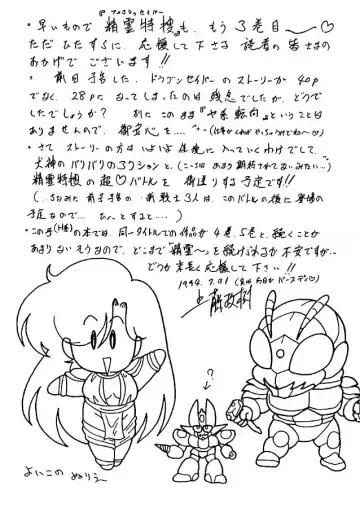 フェアリィセイバー
・早いもので精霊特捜も、もう3巻目〜♡
ただひたすらに、応援して下さる読者の皆さまの
おかげでございます!!
・前回予告した、ドラゴンセイバーのストーリーが40p
でなく、28pになってしまったのは残念でしたが、どうで
したでしょうか? 別にこのまま"や系転向"ということは
ありませんので、御安心を……
・さて ストーリーの方はいよいよ佳境に入っていくわけでして、
犬神のバリバリの3クションと、(こっちはあまり期待されてないみたい…)
精霊特捜の超♡バトルを 街送りする予定です!!
(…ちなみに前号予告の・新戦士3人は、このバトルの後に登場の
予定なので…
・この手(H系)の本では、同一タイトルでの作品が4巻、5巻と、続くことが
あまりないそうなので、どこまで「精霊〜」を続けられるか不安ですが…
どうか末長く応援して下さい!!
1994.7.01
?
よいこの ぬりえ